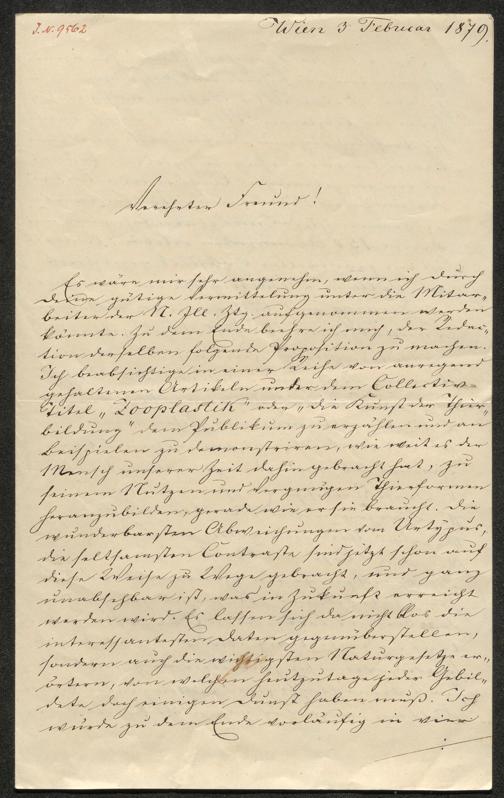 J. N. 9562
Wien 3 Februar 1879.
Verehrter Freund!
Es wäre mir sehr angenehm, wenn ich durch
Deine gütige Vermittelung unter die Mitar-
beiter der N. Ill. Ztg. aufgenommen werden
könnte. Zu dem Ende beehre ich mich, der Redac-
tion derselben folgende Proposition zu machen.
Ich beabsichtige in einer Reihe von anregend
gehaltenen Artikeln unter dem Collectiv-
Titel „Zooplastik" oder „die Kunst der Thier-
bildung" dem Publikum zu erzählen und an
Beispielen zu demonstriren, wie weit es der
Mensch unserer Zeit dahin gebracht hat, zu
seinem Nutzen und Vergnügen Thierformen
heranzubilden, gerade wie er sie braucht. Die
wunderbarsten Abweichungen vom Urtypus,
die seltsamsten Contraste sind jetzt schon auf
diese Weise zu Wege gebracht, und ganz
unabsehbar ist, was in Zukunft erreicht
werden wird. Es lassen sich da nicht blos die
interessantesten Daten gegenüberstellen,
sondern auch die wichtigsten Naturgesetze er-
örtern, von welchen heutzutage jeder Gebil-
dete doch einigen Dunst haben muß. Ich
würde zu dem Ende vorläufig in vier